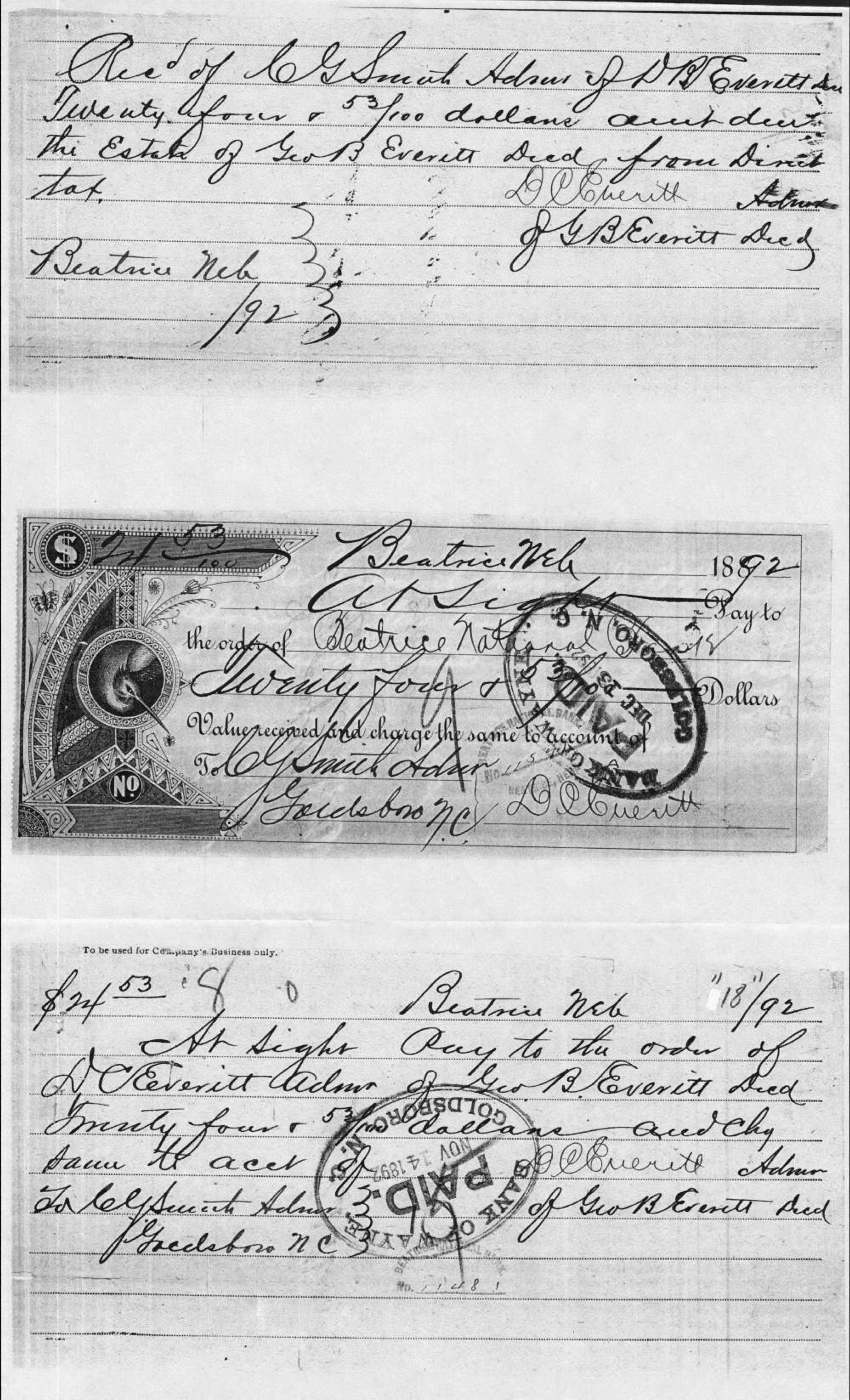 Recd of C G Smith Admr of D B Everitt Decd
Twenty four & 53/100 dollars amt due
the Estate of Geo B Everitt Decd from Direct
tax.
D C Everitt Admr
of G B Everitt Decd
Beatrice Neb
/92
$ 24 53/100
Beatrice Neb 1892
At Sight Pay to
the order of Beatrice National Bank
Twenty four & Dollars
Value received and charge the same to account of
To C G Smith Admr
Goldsboro N.C.
D C Everitt
No
BANK OF WAYNE.
PAID
DEC 23
GOLDSBORO, N. C.
To be used for Company's Business only.
$24 53 8 0
Beatrice Neb "18"/92
At Sight Pay to the order of
D C Everitt Admr of Geo. B. Everitt Decd
Twenty four & 53/100 dollars and chg
same to acct of D C Everitt Admr
To C G Smith Admr of Geo B Everitt Decd
Goldsboro N C
BANK OF WAYNE.
PAID.
NOV 14 1892
GOLDSBORO, N. C.
No. 11481